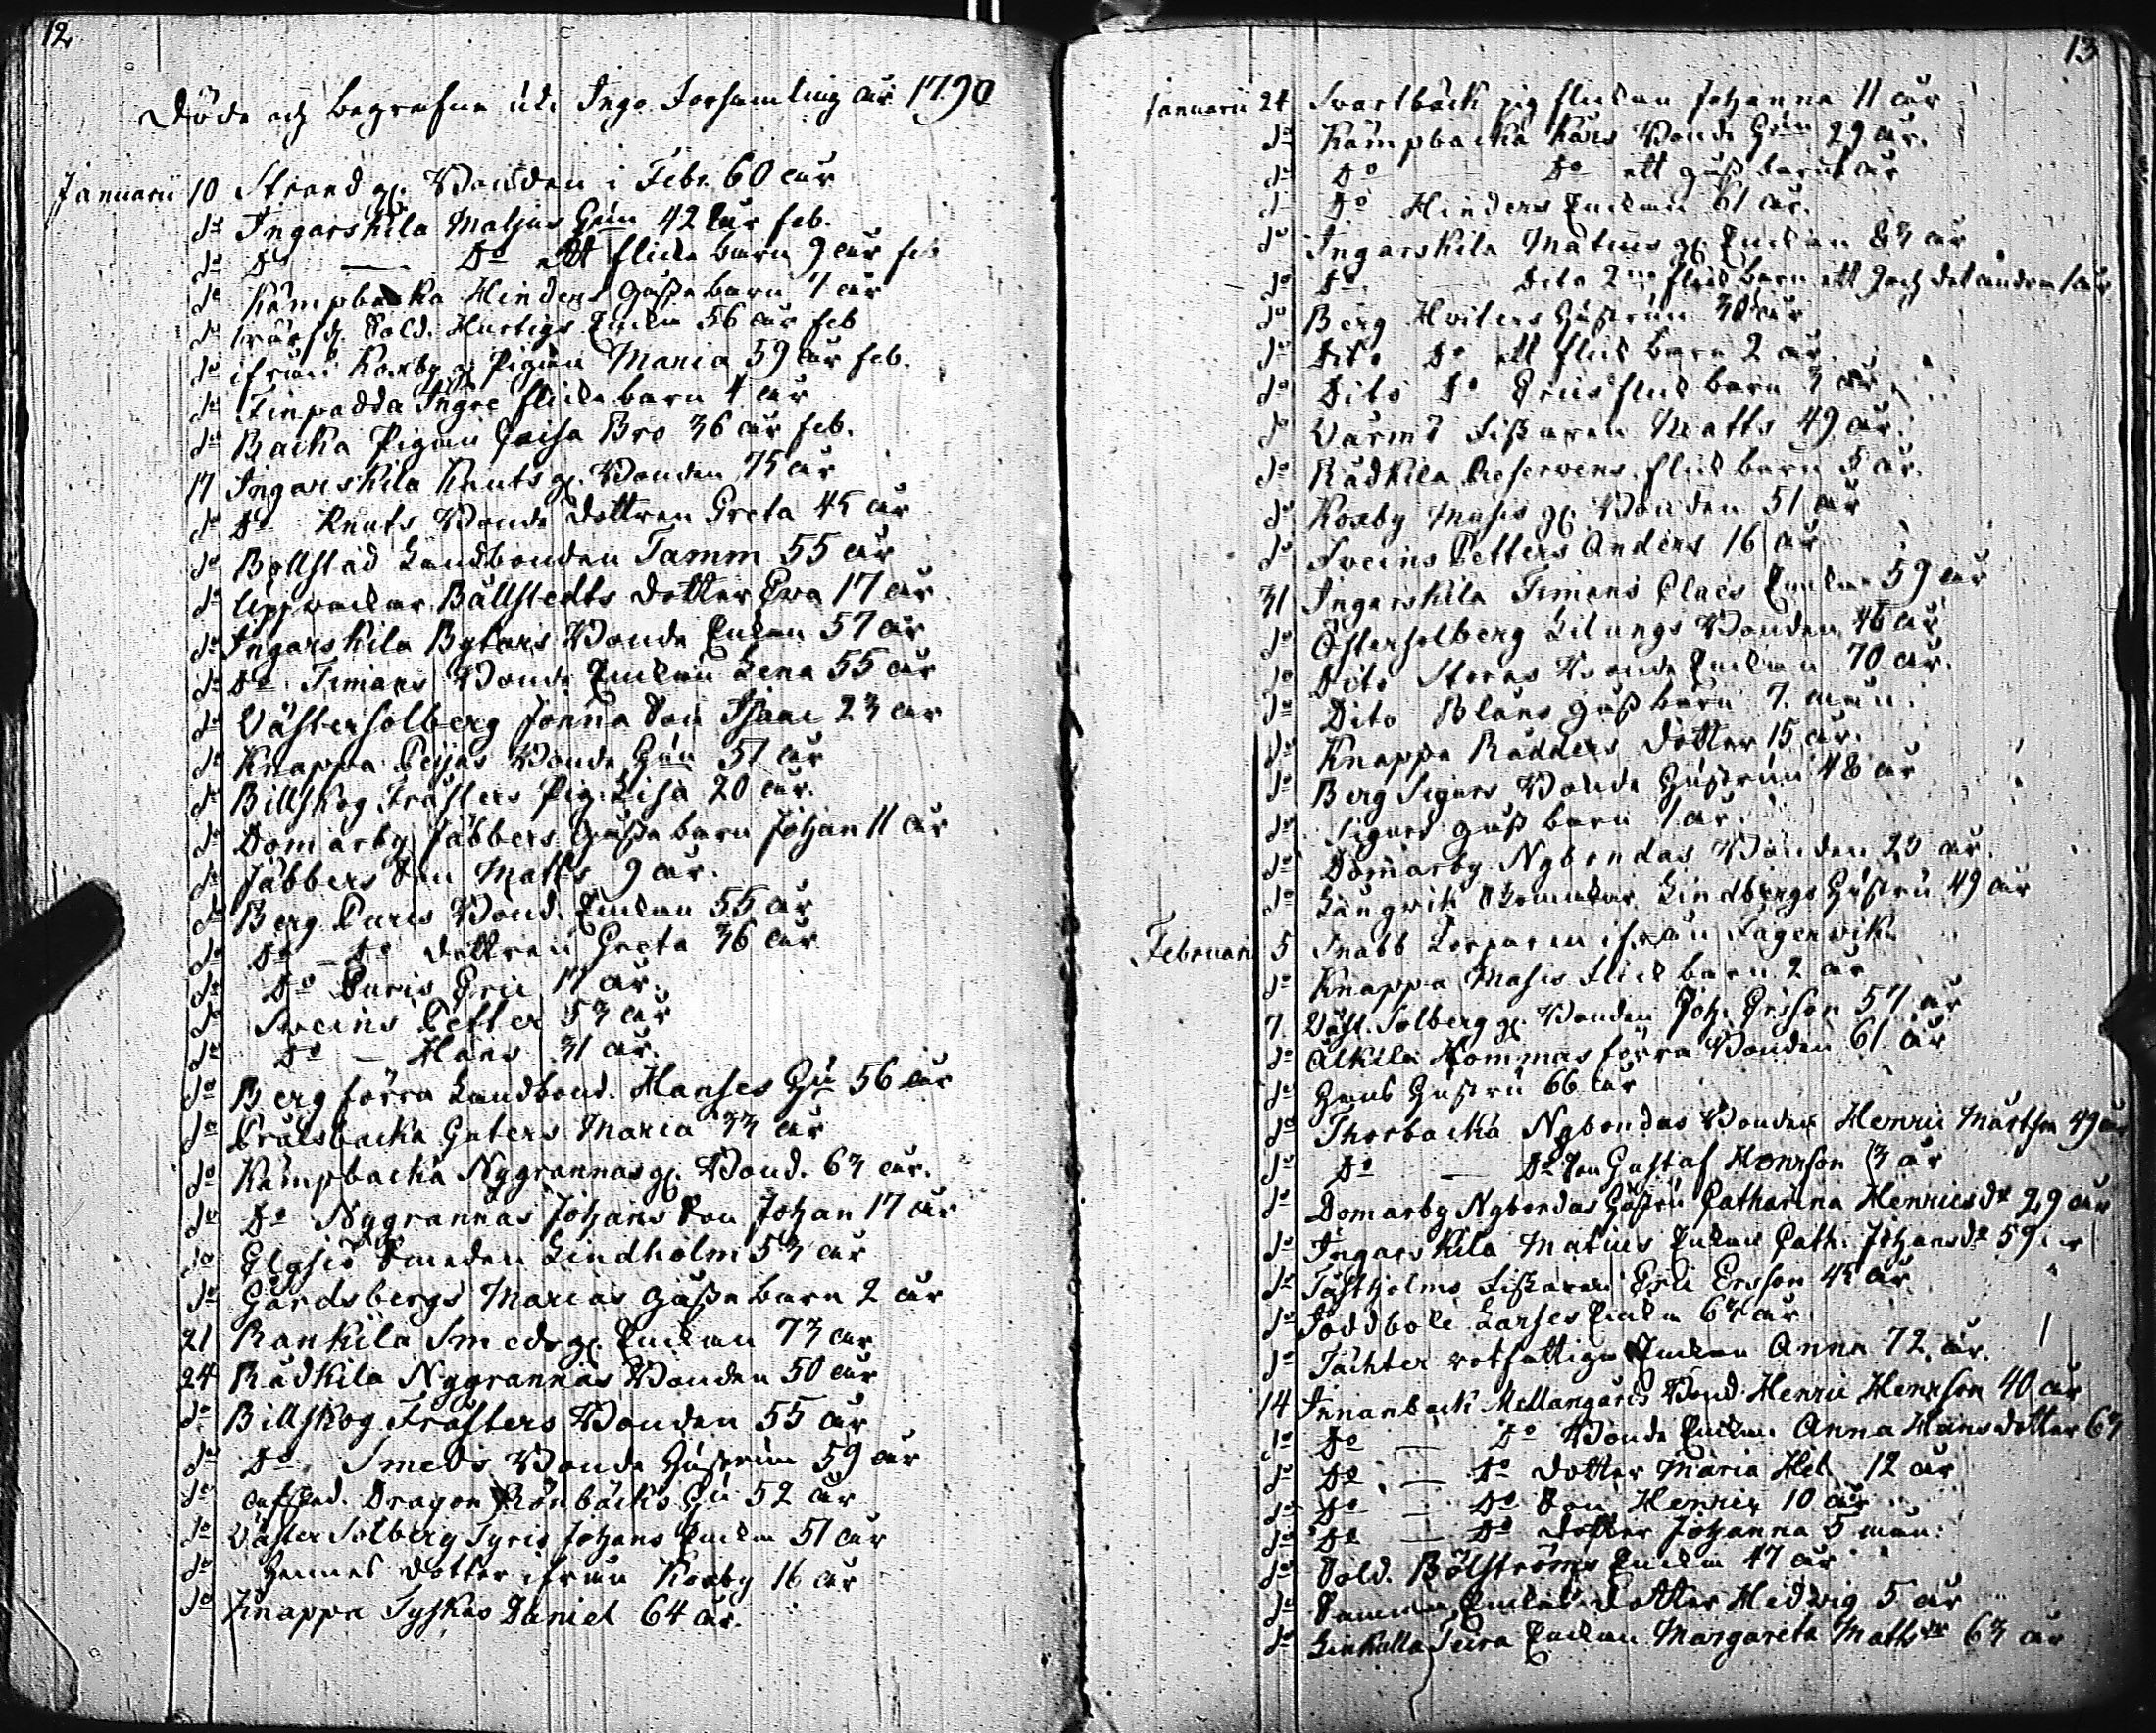 12
Döde och begrafne uti Ingo Forsamling år 1790
Januarii 10 Strand gl. Bonden i Febr. 60 åår
do Ingarskila Matjus Hu 42 åår feb.
do Do — Do ett flicke barn 9 åår feb
do Kämpbacka Hinders gosse barn 1 åår
do Sold. Hurtigs Enka 56 åår feb
do ifrån Koxby gl. Pigan Maria 59 åår feb.
do Finpadda Ingre flicke barn 4 åår
do Backa Pigan Caisa Bro 36 åår feb.
17 Ingarskila Knuts gl. Bonden 75 åår
do Do Knuts Bonde dottren Greta 45 åår
do Bollstad Landbonden Tamm 55 åår
do Uppvacktar Bällstedts dotter Eva 17 åår
do Ingarskila Bytars Bonde Enkan 57 åår
do Do Timans Bonde Enkan Lena 55 åår
do Västersolberg Jonna Son Isaac 23 åår
do Knappa Peijas Bonde Hu 51 åår
do Billskog Frästers Pig. Lisa 20 åår.
do Domarby Jäbbers Gosse barn Johan 11 åår
do Jäbbers Son Matts 9 åår.
do Berg Puris Bond. Enkan 55 åår
do Do — Do dottren Greta 36 åår
do Do Puris Eric 17 åår.
do Sveins Petter 53 åår
do Do — Hans 31 åår.
do Berg förra Landbond. Hanses Hu 56 åår
do Trälsbacka Gaters Maria 33 åår
do Kämpbacka Nygrannas gl. Bond. 63 åår.
do Do Nygrannas Johans Son Johan 17 åår
do Elgsiö Smeden Lindholm 53 åår
do Gårdsbergs Marcas gosse barn 2 åår
21 Rankila Smeds gl. Enkan 73 åår
24 Rådkila Nygrannas Bonden 50 åår
do Billskog Fräfters Bonden 55 åår
do Do Smeds Bonde Hustrun 59 åår
do afsked. Dragon Rönbäcks Hu 52 åår
do Väster Solberg Syris Johans Enkan 51 åår
do Hennes dotter ifrån Koxby 16 åår
do Knappa Tyskas Daniel 64 åår.
13
Januarii 24 Svartbäck pig flickan Johanna 11 åår
do Kämpbacka Kåars Bonde Hun 29 åår.
do Do Do ett goss barn åår
do Do Hinders Enkan 61 åår.
do Ingarskila Matius gl. Enkan 83 åår
do Do Dito 2ne flick barn ett 3 och det andra 1 åår
do Berg Hviters Hustrun 30 åår
do Dito Do ett flick barn 2 åår
do Dito Do flick barn 3 åår
do Varmö Fiskaren Matts 49 åår.
do Rådkila Reservens flick barn 5 åår.
do Koxby Masis gl. Bonden 51 åår
do Sveins Petters Anders 16 åår
31 Ingarskila Timans Claes Enkan 59 åår
do Östersolberg Lilungs Bonden 46 åår
do Dito Storas Bonde Enkan 70 åår.
do Dito Blans goss barn 7. mån.
do Knappa Rådders dotter 15 åår.
do Berg Sigurs Bonde Hustrun 48 åår
do Sigurs goss barn 1 åår.
do Domarby Nybondas Bonden 23 åår
do Långwik Skomakar Lindbergs Hustru 49 åår
Februari 5 Snabb Torparen ifrån Fagervik
do Knappa Masis flick barn 2 åår
7 Väst. Solberg gl. Bonden Joh. Ersson 57 åår
do Älkila Hommas förra Bonden 61 åår
do Hans Hustru 66 åår
do Thorbacka Nybondas Bonden Henric Martsson 49 åår
do Do — Do Son Gustaf Henrson 13 åår
do Domarby Nybondas Hustru Catharina Henricsdr 29 åår
do Ingarskila Matius Enkan Cath. Johansdr 59 åår
do Tästholms Fiskaren Eric Ersson 45 åår
do Joddböle Larses Enkan 63 åår
do Tächter rotfattiga Enkan Anna 72. åår.
14 Innanbäck Mellangårds Bond. Henric Henrson 40 åår
do Do — Do Bonde Enkan Anna Hansdotter 63
do Do — Do dotter Maria Hel. 12 åår
do Do — Do Son Henric 10 åår
do Do — Do dotter Johanna 5 mån.
do Sold. Bölströms Enkan 47 åår
do Samma Enkas dotter Hedvig 5 åår
do Linkulla Enkan Margareta Mathsdr 63 åår